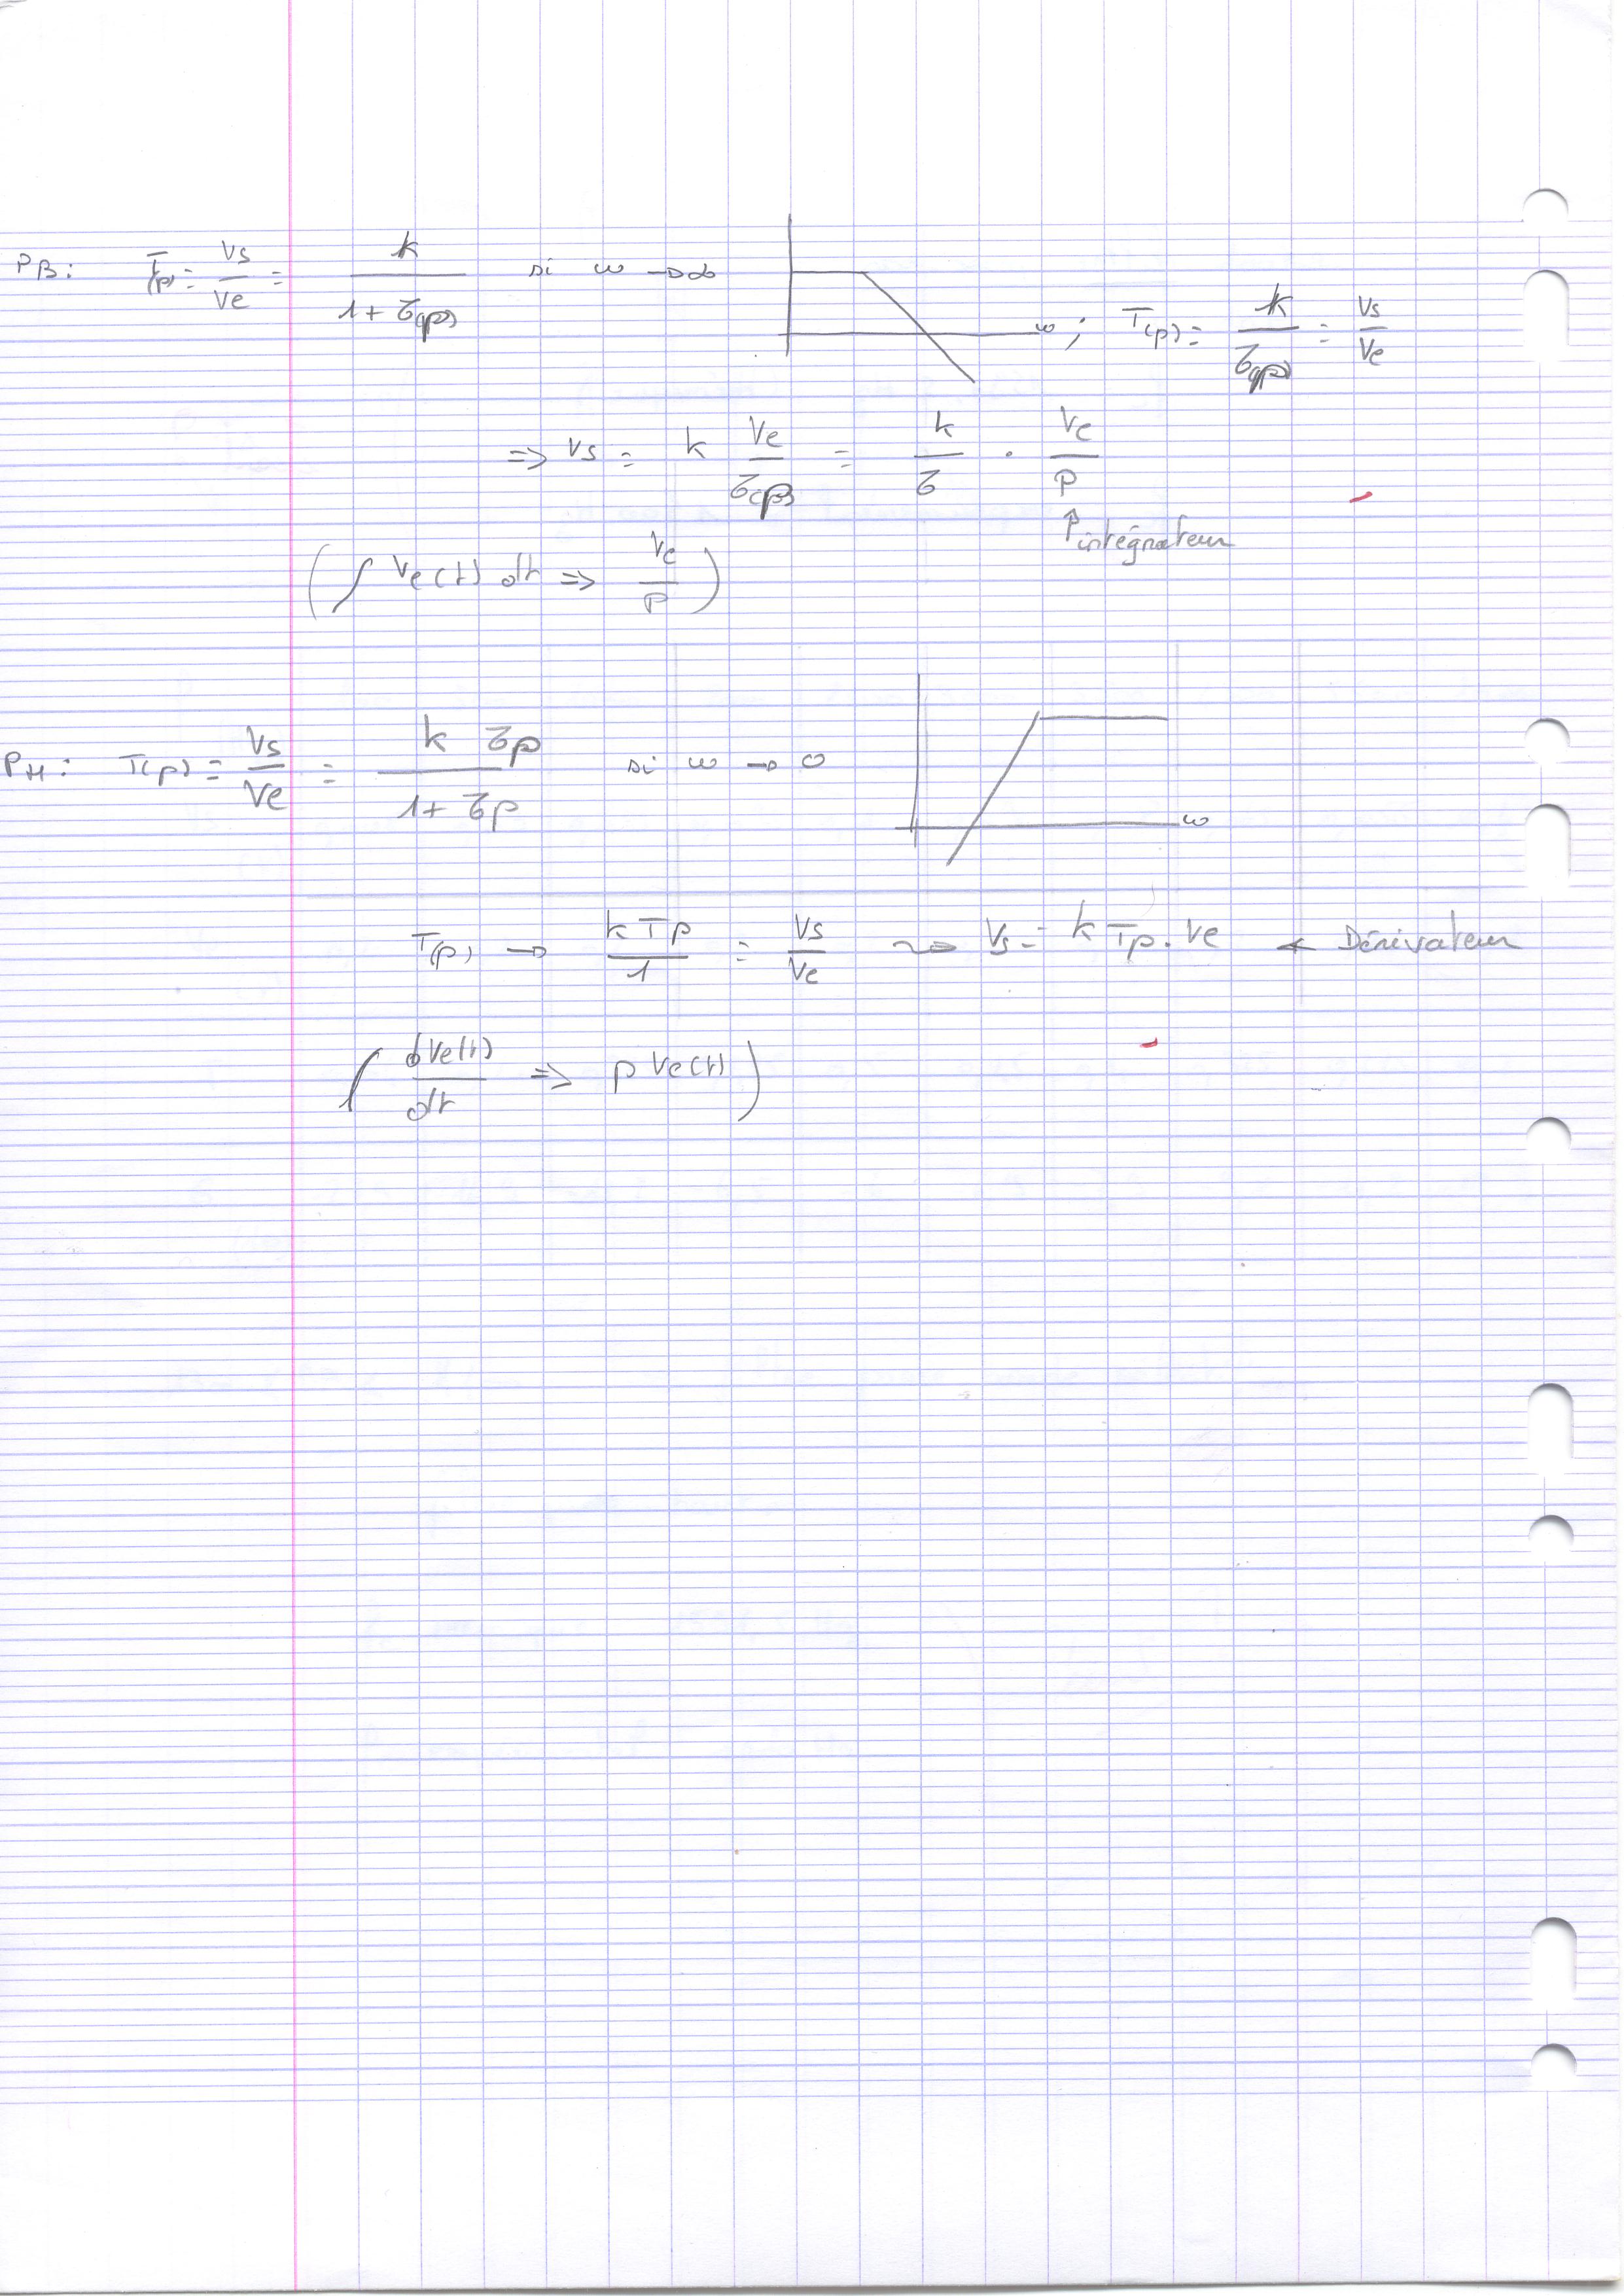 PB: T(p) = Vs/Ve = k/(1 + τ(p)) si ω → ∞ ω ; T(p) = k/τ(p) = Vs/Ve
=> Vs = k Ve/τ(p) = k/τ . Ve/p
↑ intégrateur
(∫ Ve(t) dt => Ve/p)
PH: T(p) = Vs/Ve = k τp/(1 + τp) si ω → 0 ω
T(p) → k Tp/1 = Vs/Ve ~> Vs = k Tp . Ve ← Dérivateur
(dVe(t)/dt => p Ve(t))